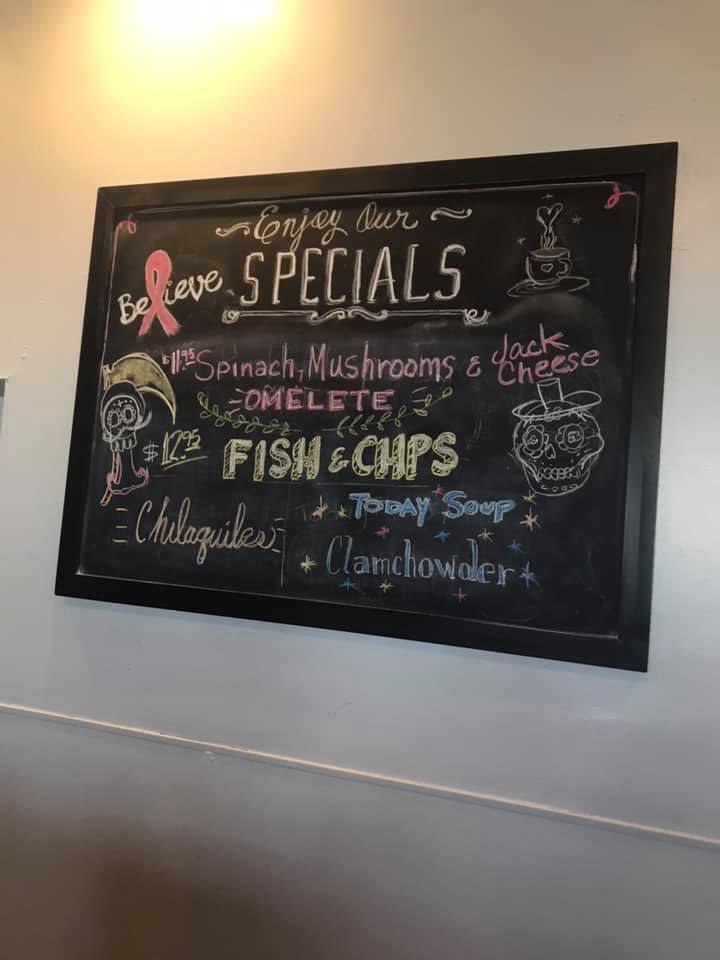 Enjoy Our
Believe SPECIALS
$11.95 Spinach, Mushrooms & Jack Cheese
OMELETE
$12.95 FISH & CHIPS
Chilaquiles
TODAY SOUP
Clamchowder